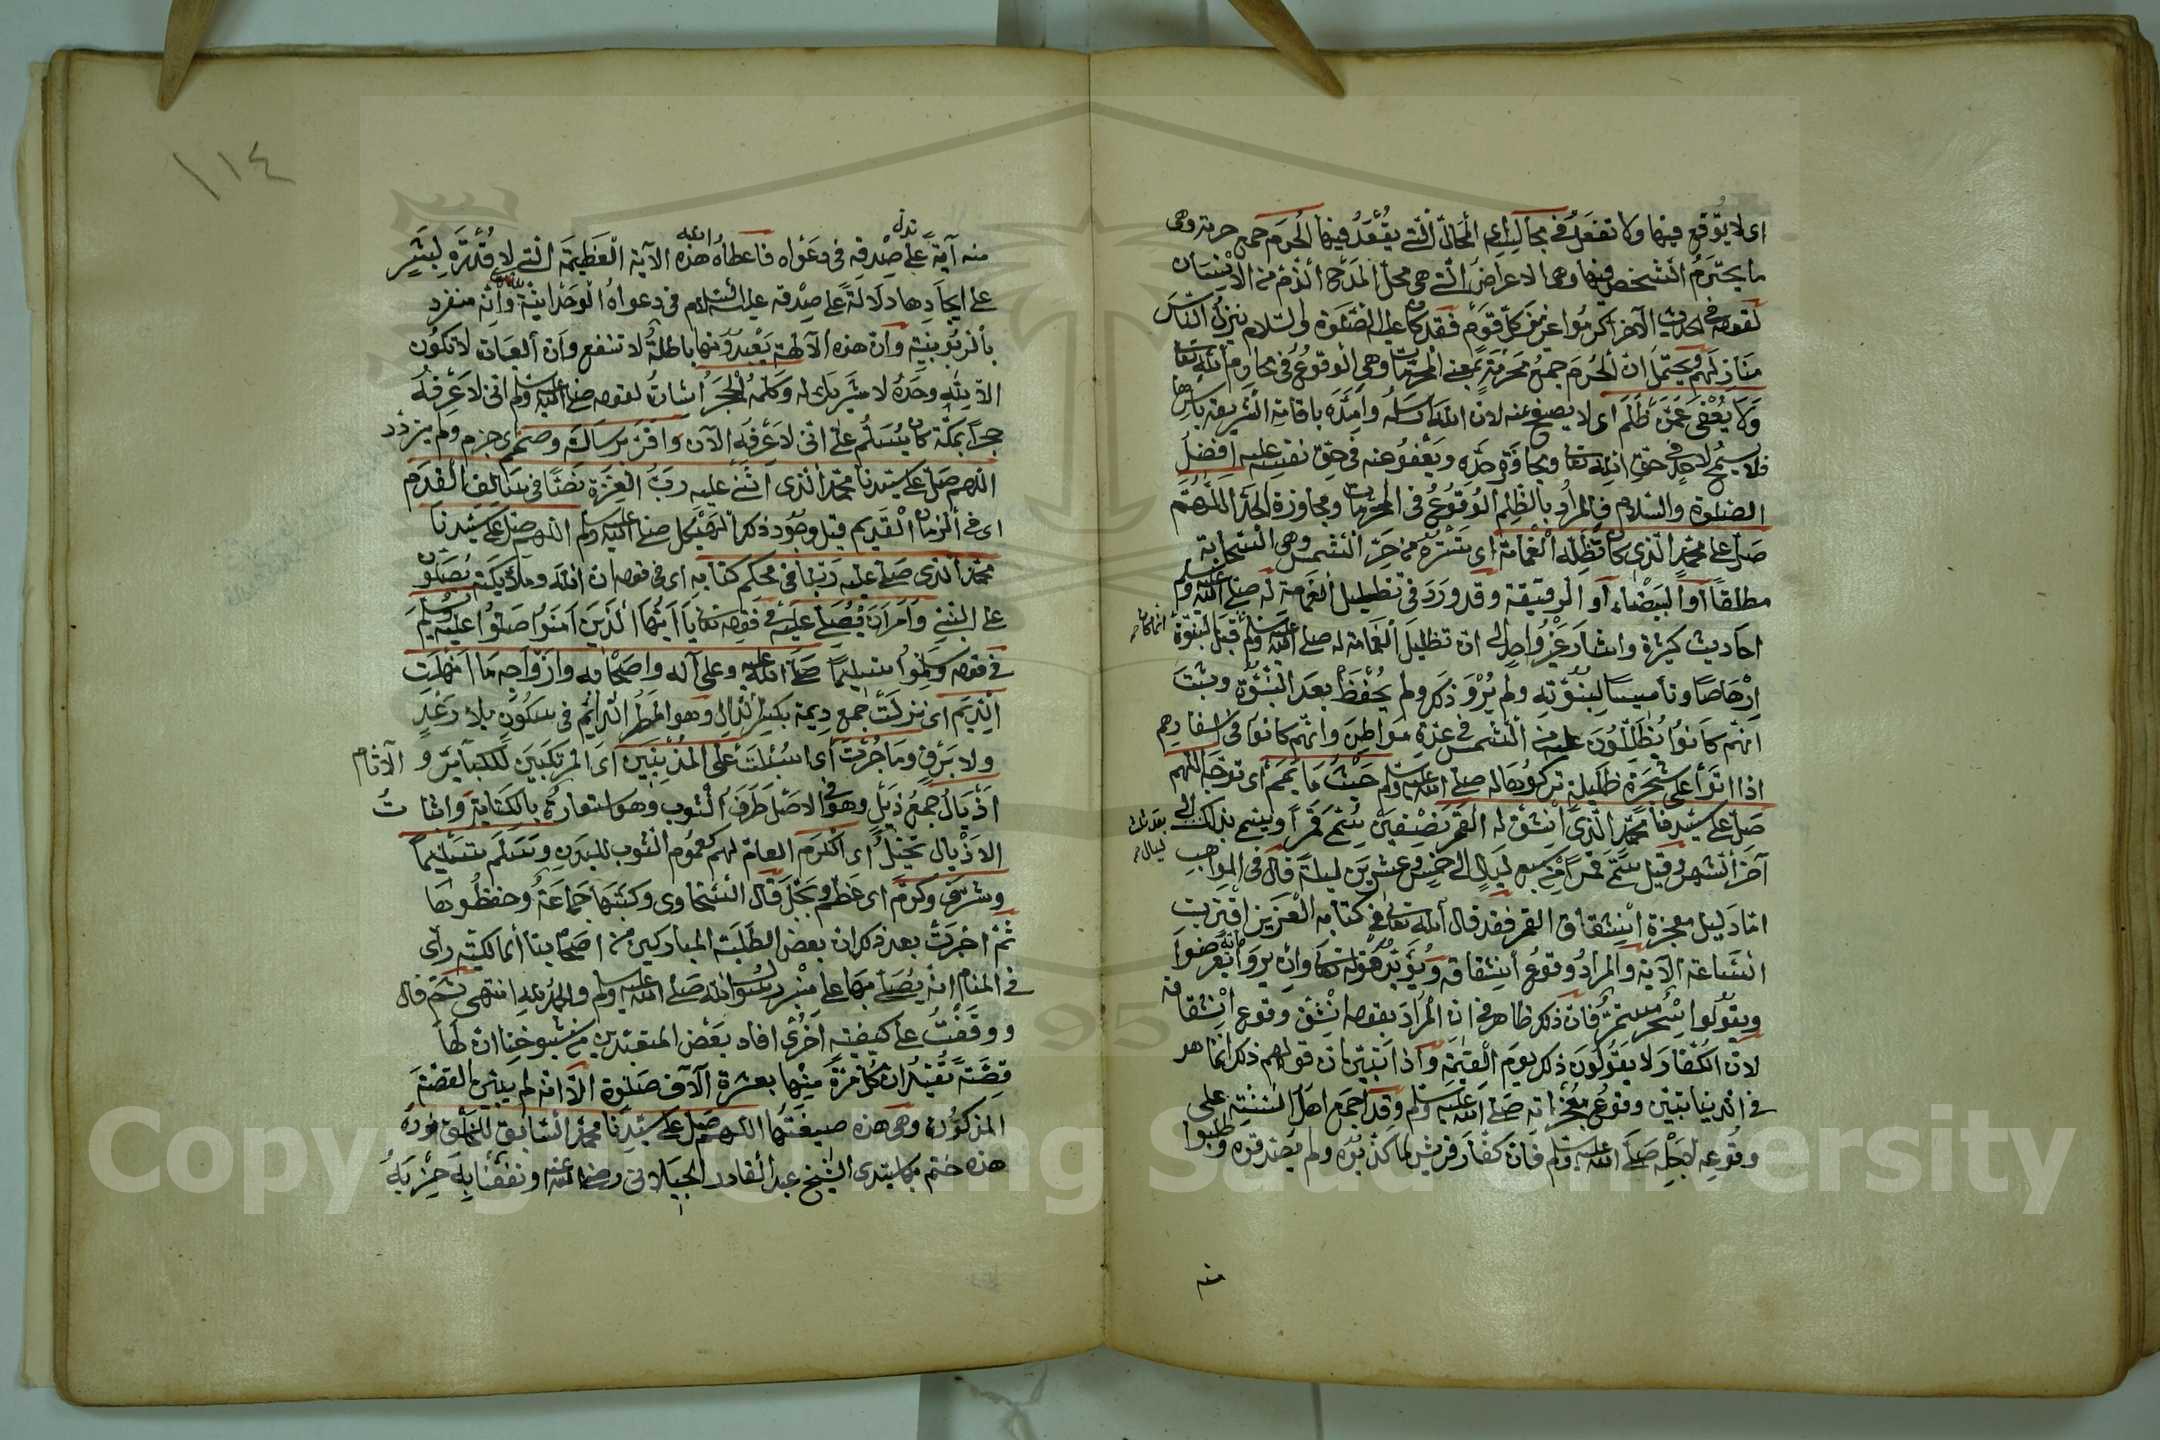 اى لا يوقع فيها ولا تفعل فى مجالسه اى المحال التى يقعد فيها الحرم جمع حرمة وهى
ما يحترم الشخص فيها وهى الاعراض التى هى محل المدح الذم من الانسان
لقوله فى الحديث الآخر اكرموا عزيز كل قوم فقد كان عليه الصلوة والسلام ينزل الناس
منازلهم ويحتمل ان الحرم جمع محرمة بمعنى الحرمات وهى الوقوع فى محارم الله تعالى
ولا يعفى عمن ظلم اى لا يصفح عنه لان الله ارسله وامده باقامة الشريعة باسرها
فلا يسمح لاحد فى حق الله تعالى ومجاوزة حده ويعفو عنه فى حق نفسه عليه افضل
الصلوة والسلام فالمراد بالظلم الوقوع فى الحرمات ومجاوزة الحد اللهم
صل على محمد الذى كان تظله الغمامة اى تستره من حر الشمس وهى السحابة
مطلقا او البيضاء او الرقيقة وقد ورد فى تظليل الغمامة له صلى الله عليه وسلم
احاديث كثيرة واشار غير واحد الى ان تظليل الغمامة له صلى الله عليه وسلم قبل النبوة
انما كان صح
ارهاصا وتأسيسا لنبوته ولم يرو ذكر ولم يحفظ بعد النبوة وثبت
انهم كانوا يظللون عليه من الشمس فى عدة مواطن وانهم كانوا فى اسفارهم
اذا اتوا على شجرة ظليلة تركوها له صلى الله عليه وسلم حيث ما يمم اى توجه اللهم
صل على سيدنا محمد الذى انشق له القمر نصفين سمى قمرا ويسمى بذلك الى
بعد ثلاث ليال صح
آخر الشهر وقيل يسمى قمرا من سبع ليال الى خمس وعشرين ليلة قال فى المواهب
اما دليل معجزة انشقاق القمر فقد قال الله تعالى فى كتابه العزيز اقتربت
الساعة الآية والمراد وقوع انشقاقه ويؤيده قوله تعالى وان يروا آية يعرضوا
ويقولوا سحر مستمر فان ذلك ظاهر فى ان المراد بقوله انشق وقوع انشقاقه
لان الكفار لا يقولون ذلك يوم القيمة واذا تبين ان قولهم ذلك انما هو
فى الدنيا تبين وقوع معجزاته صلى الله عليه وسلم وقد اجمع اهل السنة على
وقوعه لاجله صلى الله عليه وسلم فان كفار قريش لما كذبوه ولم يصدقوه وطلبوا
منه
١١٤
منه آية تدل على صدقه فى دعواه فاعطاه الله هذه الآية العظيمة التى لا قدرة لبشر
على ايجادها دلالة على صدقه عليه السلام فى دعواه الوحدانية لله وانه منفرد
بالربوبية وان هذه الآلهة يعبدونها باطلة لا تنفع وان العبادة لا تكون
الا لله وحده لا شريك له وكلمه الحجر اشارة لقوله صلى الله عليه وسلم انى لاعرف
حجرا بمكة كان يسلم على انى لاعرفه الآن واقر برسالته وصمم اى جزم ولم يتردد
اللهم صل على سيدنا محمد الذى اثنى عليه رب العزة نصا فى سالف القدم
اى فى الزمان القديم قبل وجود ذلك الهيكل صلى الله عليه وسلم اللهم صل على سيدنا
محمد الذى صلى عليه ربنا فى محكم كتابه اى فى قوله ان الله وملائكته يصلون
على النبى وامر ان يصلى عليه فى قوله تعالى يا ايها الذين امنوا صلوا عليه ويسلم
فى قوله وسلموا تسليما صلى الله عليه وعلى آله واصحابه وازواجه ما انهلت
الديم اى نزلت جمع ديمة بكسر الدال وهو المطر الدائم فى سكون بلا رعد
ولا برق وما جرت اى اسبلت على المذنبين اى المرتكبين للكبائر و الآثام
اذيال جمع ذيل وهو فى الاصل طرف الثوب وهو استعارة بالكناية واثبات
الاذيال تخييل اى الكرم العام لهم كعموم الثوب للبدن وتسلم تسليما
وشرف وكرم اى عظم وبجل قال السخاوى وكتبها جماعة وحفظوها
ثم اخبرت بعد ذلك ان بعض الطلبة المباركين من اصحابنا المالكية رأى
فى المنام انه يصلى بها على منبر رسول الله صلى الله عليه وسلم والحمد لله انتهى ثم قال
ووقفت على كيفية اخرى افاد بعض المعتمدين من شيوخنا ان لها
قصة تفيد ان كل مرة منها بعشرة الآف صلوة الا انه لم يبين القصة
المذكورة وهى هذه صيغتها اللهم صل على سيدنا محمد السابق للخلق نوره
هذه ختم بها سيدى الشيخ عبد القادر الجيلانى رضى الله عنه ونفعنا به حزبه